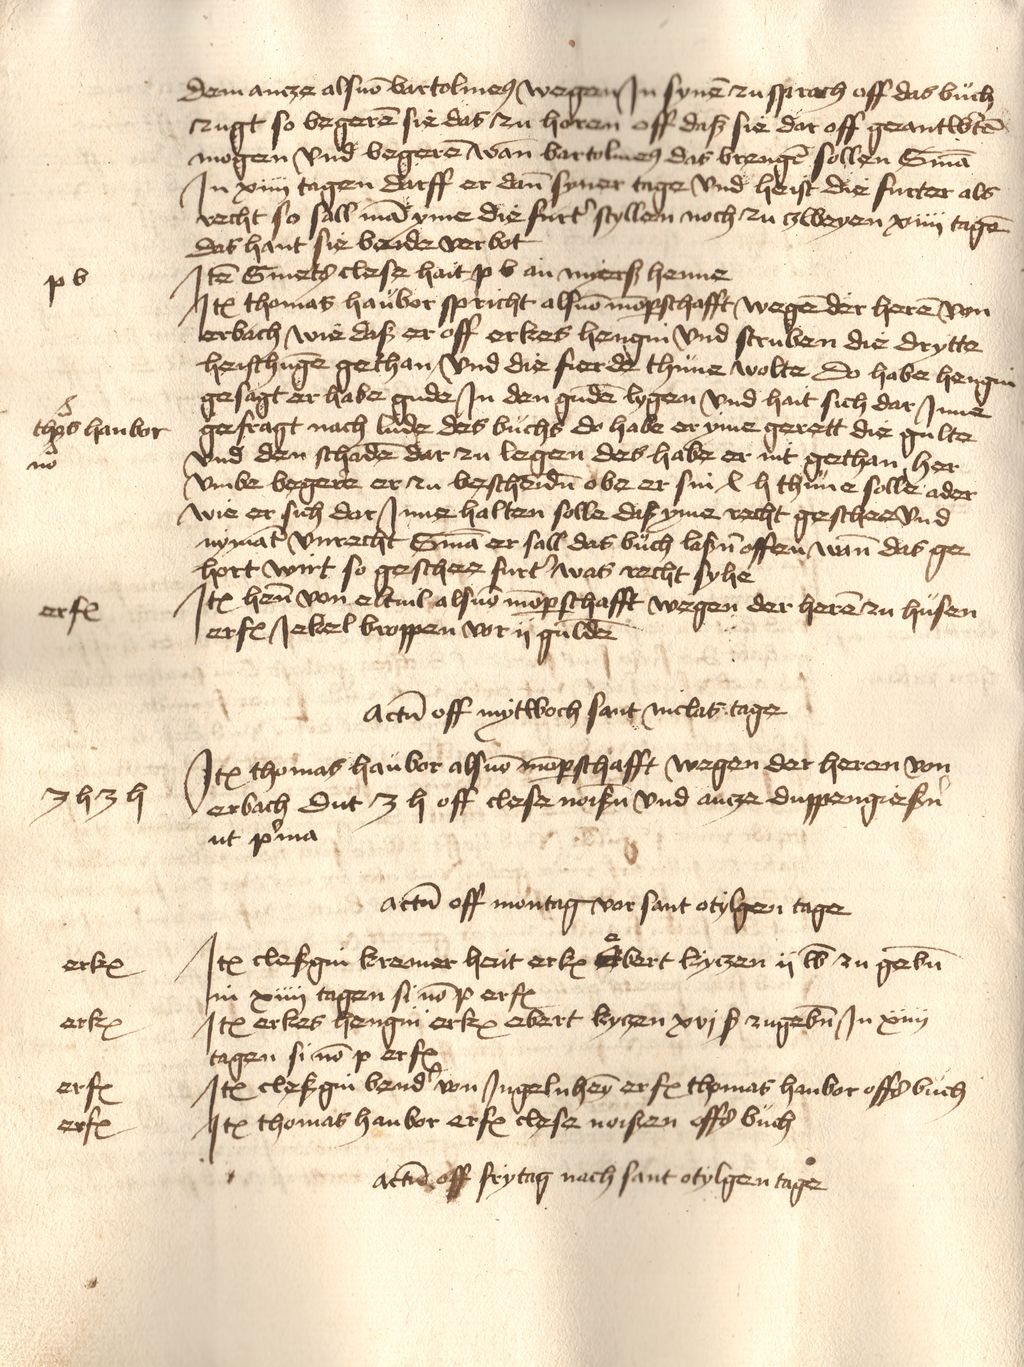 dem ancze alsuō bartolmeꝰ wegen In synē zusprach off das büch
zugt so begerē sie das zu horen off daß sie dar off geantwtē
mogen vnd begerē wan̄ bartolmeꝰ das brengē sollen Sniā
In xiiii tagen darff er dan̄ syner tage vnd heist die furter als
recht so sall mā yme die furt' styllen noch zu zweyen xiiii tagē
das hant sie beide verbot
p b
Itē Smetꝰ clese hait p b an myerß henne
Itꝫ thomas haubor spricht alsuō mōp̱schafft wegē der herē von
erbach wie daß er off erkes hengin vnd struben die drytte
heischūge gethan vnd die fierde thüne wolte Do habe hengin
gesagt er habe gude In den gudē lygen vnd hait sich dar Inne
thōs haubor
gefragt nach lude des buchs do habe er yme gerett die gulte
nō
vnd den schadē dar zu legen des habe er nit gethan her
vmbe begere er zu bescheidn̄ obe er sin x h thüne solle ader
wie er sich dar Inne halten solle daß yme recht geschee vnd
nymāt' vnrecht Sniā er sall das büch laßn̄ offen wan̄ das ge
hort wirt so geschee furt' was recht syhe
erfꝫ
Itꝫ hen̄ von eltuil alsuō mōp̱schafft wegen der herē zu husen
erfꝫ Jekel kroppen vor ii guldē
Actū off mytwoch sant niclas tage
Itꝫ thomas haubor alsuō mōp̱schafft wegen der heren von
3 h 3 h
erbach Dut 3 h off clese noißn̄ vnd ancze duppengießn̄
ut p'ma
Actū off montag vor sant otylgen tage
erkꝫ
Itꝫ cleßgin kremer hait erkꝫ Ebert kyczen ii lb zu gebn̄
in xiiii tagen si nō p erfꝫ
erkꝫ
Itꝫ erkes hengin erkꝫ ebert kyczen xvi ß zugebn̄ In xiiii
tagen si nō p erfꝫ
erfꝫ
Itꝫ cleßgin bend' von Ingelnheȳ erfꝫ thomas haubor offs buch
erfꝫ
Itꝫ thomas haubor erfꝫ clese noißen offs buch
Actū off frytag nach sant otylgen tage